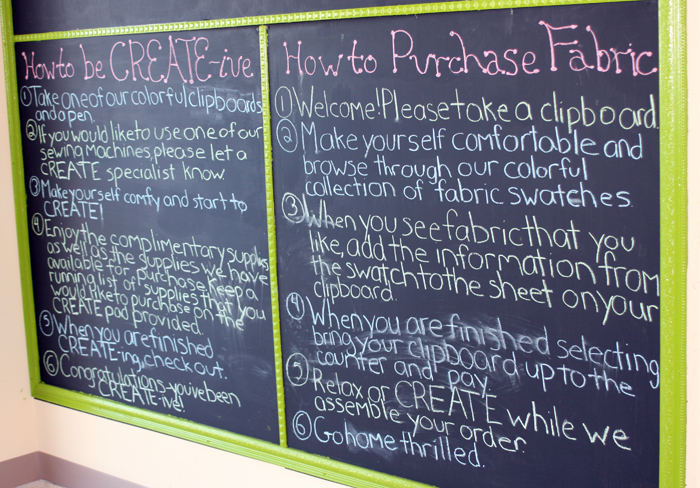 How to be CREATE-ive
① Take one of our colorful clipboards
and a pen.
② If you would like to use one of our
sewing machines, please let a
CREATE specialist know
③ Make yourself comfy and start to
CREATE!
④ Enjoy the complimentary supplies
as well as the supplies we have
available for purchase. Keep a
running list of supplies that you
would like to purchase on the
CREATE pad provided.
⑤ When you are finished
CREATE-ing, check out.
⑥ Congratulations-you've been
CREATE-ive!
How to Purchase Fabric
① Welcome! Please take a clipboard.
② Make yourself comfortable and
browse through our colorful
collection of fabric swatches.
③ When you see fabric that you
like, add the information from
the swatch to the sheet on your
clipboard.
④ When you are finished selecting
bring your clipboard up to the
counter and pay.
⑤ Relax or CREATE while we
assemble your order.
⑥ Go home thrilled.